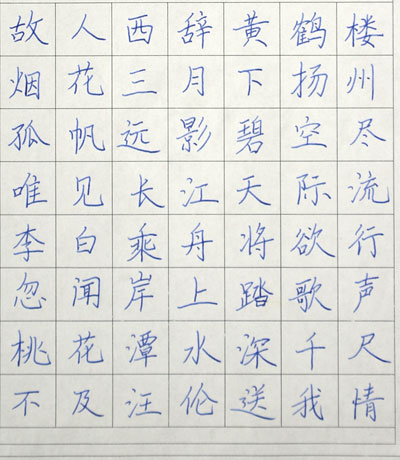 故人西辞黄鹤楼
烟花三月下扬州
孤帆远影碧空尽
唯见长江天际流
李白乘舟将欲行
忽闻岸上踏歌声
桃花潭水深千尺
不及汪伦送我情